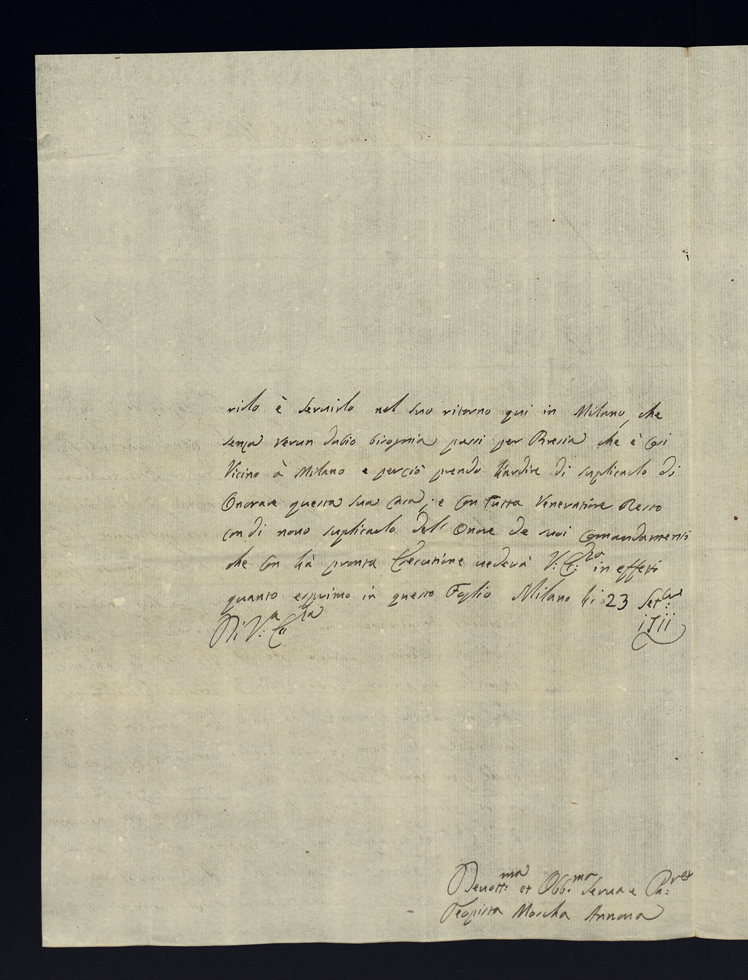 rirlo è servirlo nel suo ritorno qui in Milano, che
senza verun dubio bisognia passi per Bresia che è così
Vicino à Milano e perciò prendo l'ardire di suplicarlo di
Onorare questa sua casa, e con tutta Veneratione Resto
con di novo suplicarlo dell'Onore de suoi Comandamenti
che con la pronta Esecutione vederà V: E: in effetti
quanto esprimo in questo Foglio Milano li: 23 Set:
Di V:a Ecc:za 1711
Devott:ma et Obb:ma Serva e
Teopista Marcha Annona